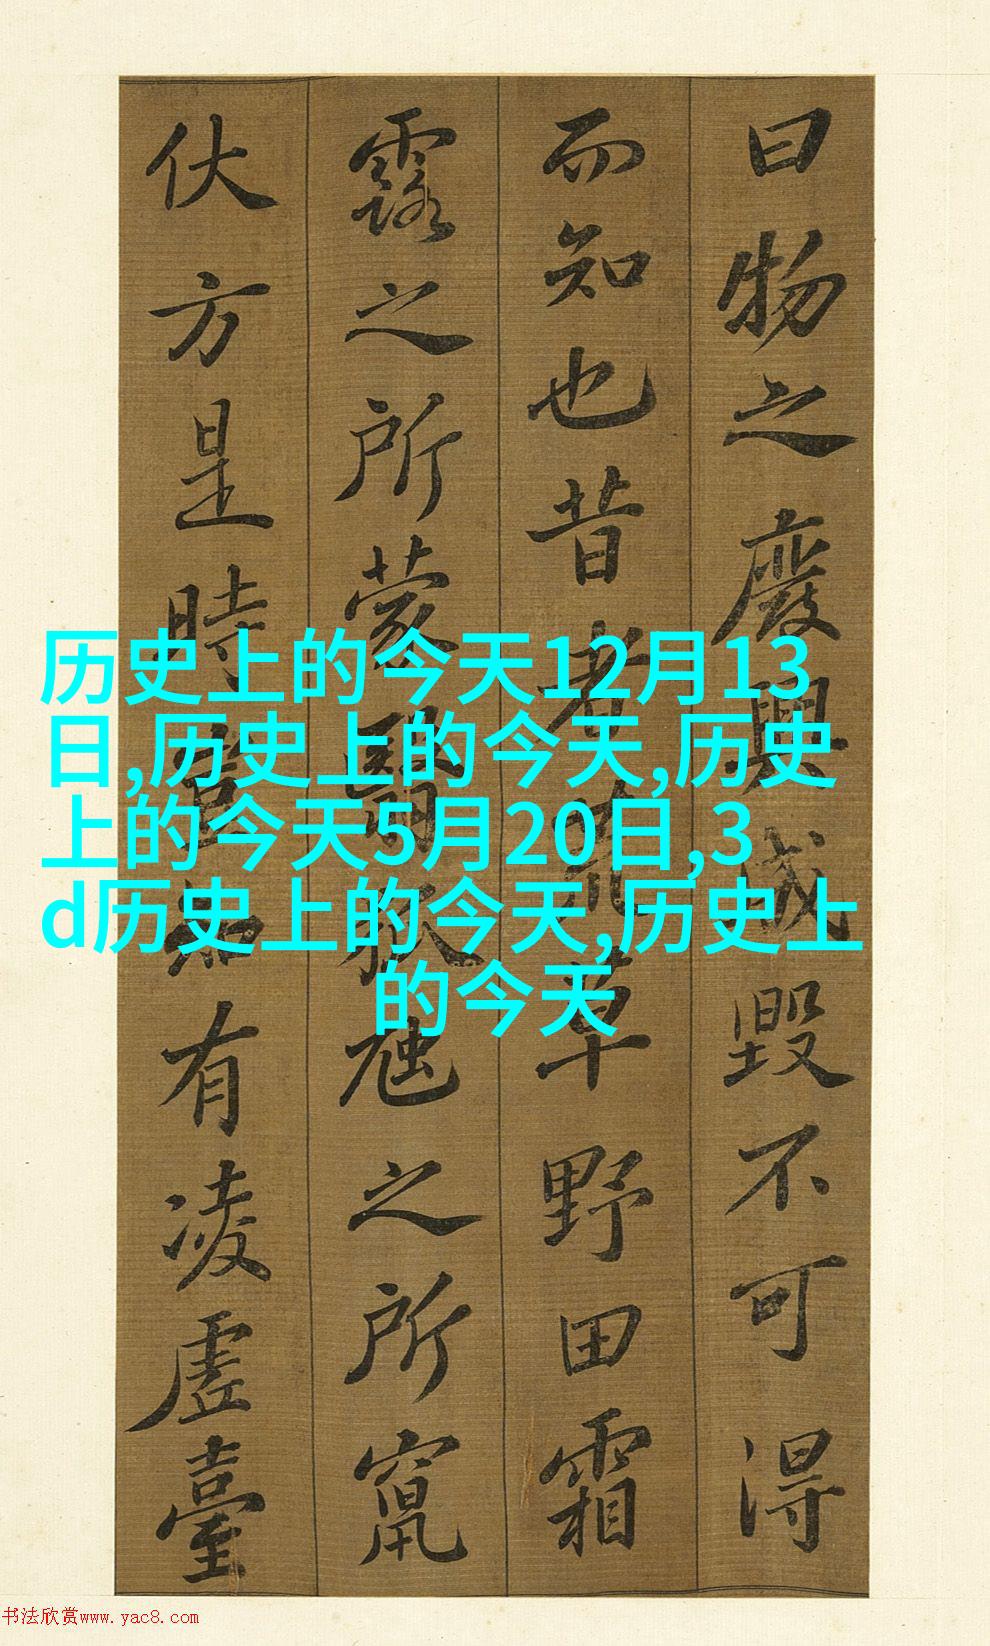 曰物之廢興成毀不可得
而知也昔者荒草野田霜
露之所蒙翳狐虺之所竄
伏方是時豈知有凌虛臺
历史上的今天12月13
日,历史上的今天,历史
上的今天5月20日,3
d历史上的今天,历史上
的今天
书法欣赏www.yac8.com